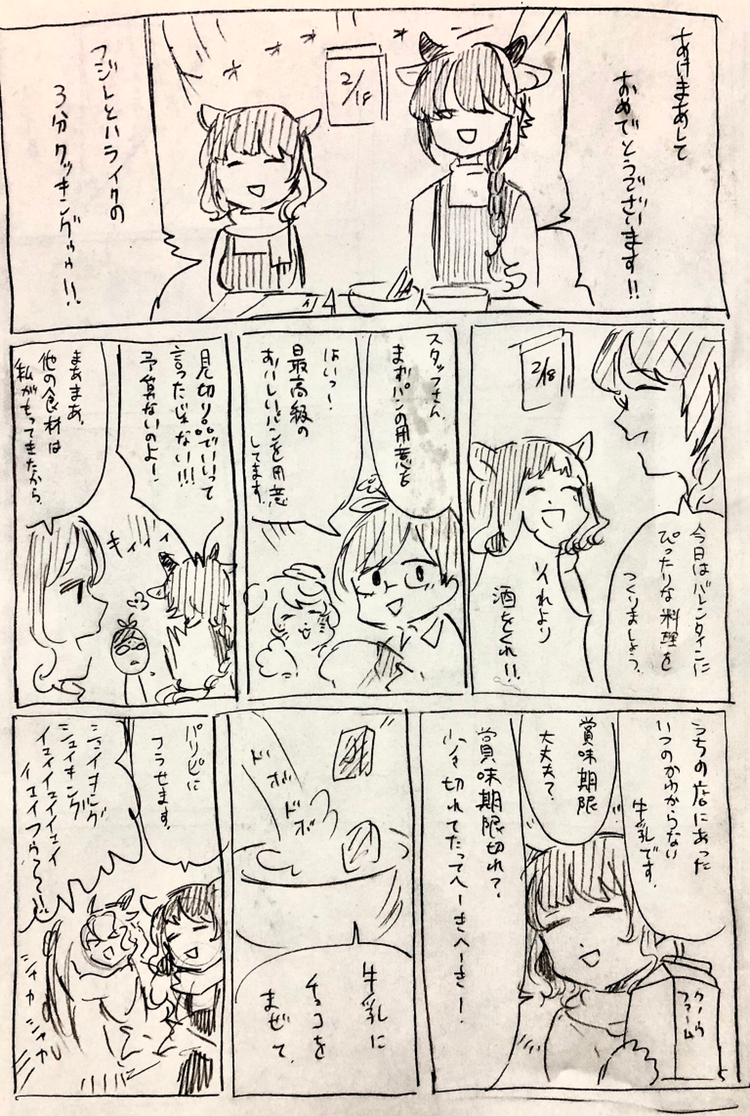 あけまあして
おめでとうでざいます!!
2/18
フジレとハライクの
3分クッキングゥゥ!!
2/18
今日はバレンタインに
ぴったりな料理を
つくりましょう。
それより
酒をくれ!!
スタッフさん、
まずパンの用意を
はいっー!
最高級の
おいしいパンを用意
してます。
見切り品でいいって
言ったじゃない!!!
予算ないのよ!
キィィィ
まあまあ、
他の食材は
私がもってきたから。
うちの店にあった
いつのかわからない
牛乳です。
賞味期限
大丈夫?
賞味期限切れ?
少々切れてたってへーきへーきー!
クーウ
ファーム
ドボドボ
牛乳に
チョコを
まぜて、
パリピに
フラせます。
シェイキング
シェイキング
イェイイェイイェイ
イェイフゥ〜〜!!
シャカ
シャカ